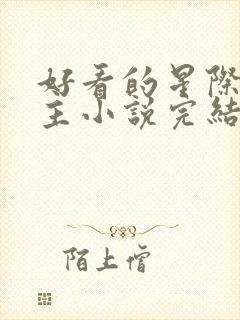 好看的星際
主小說完結
陌上僧